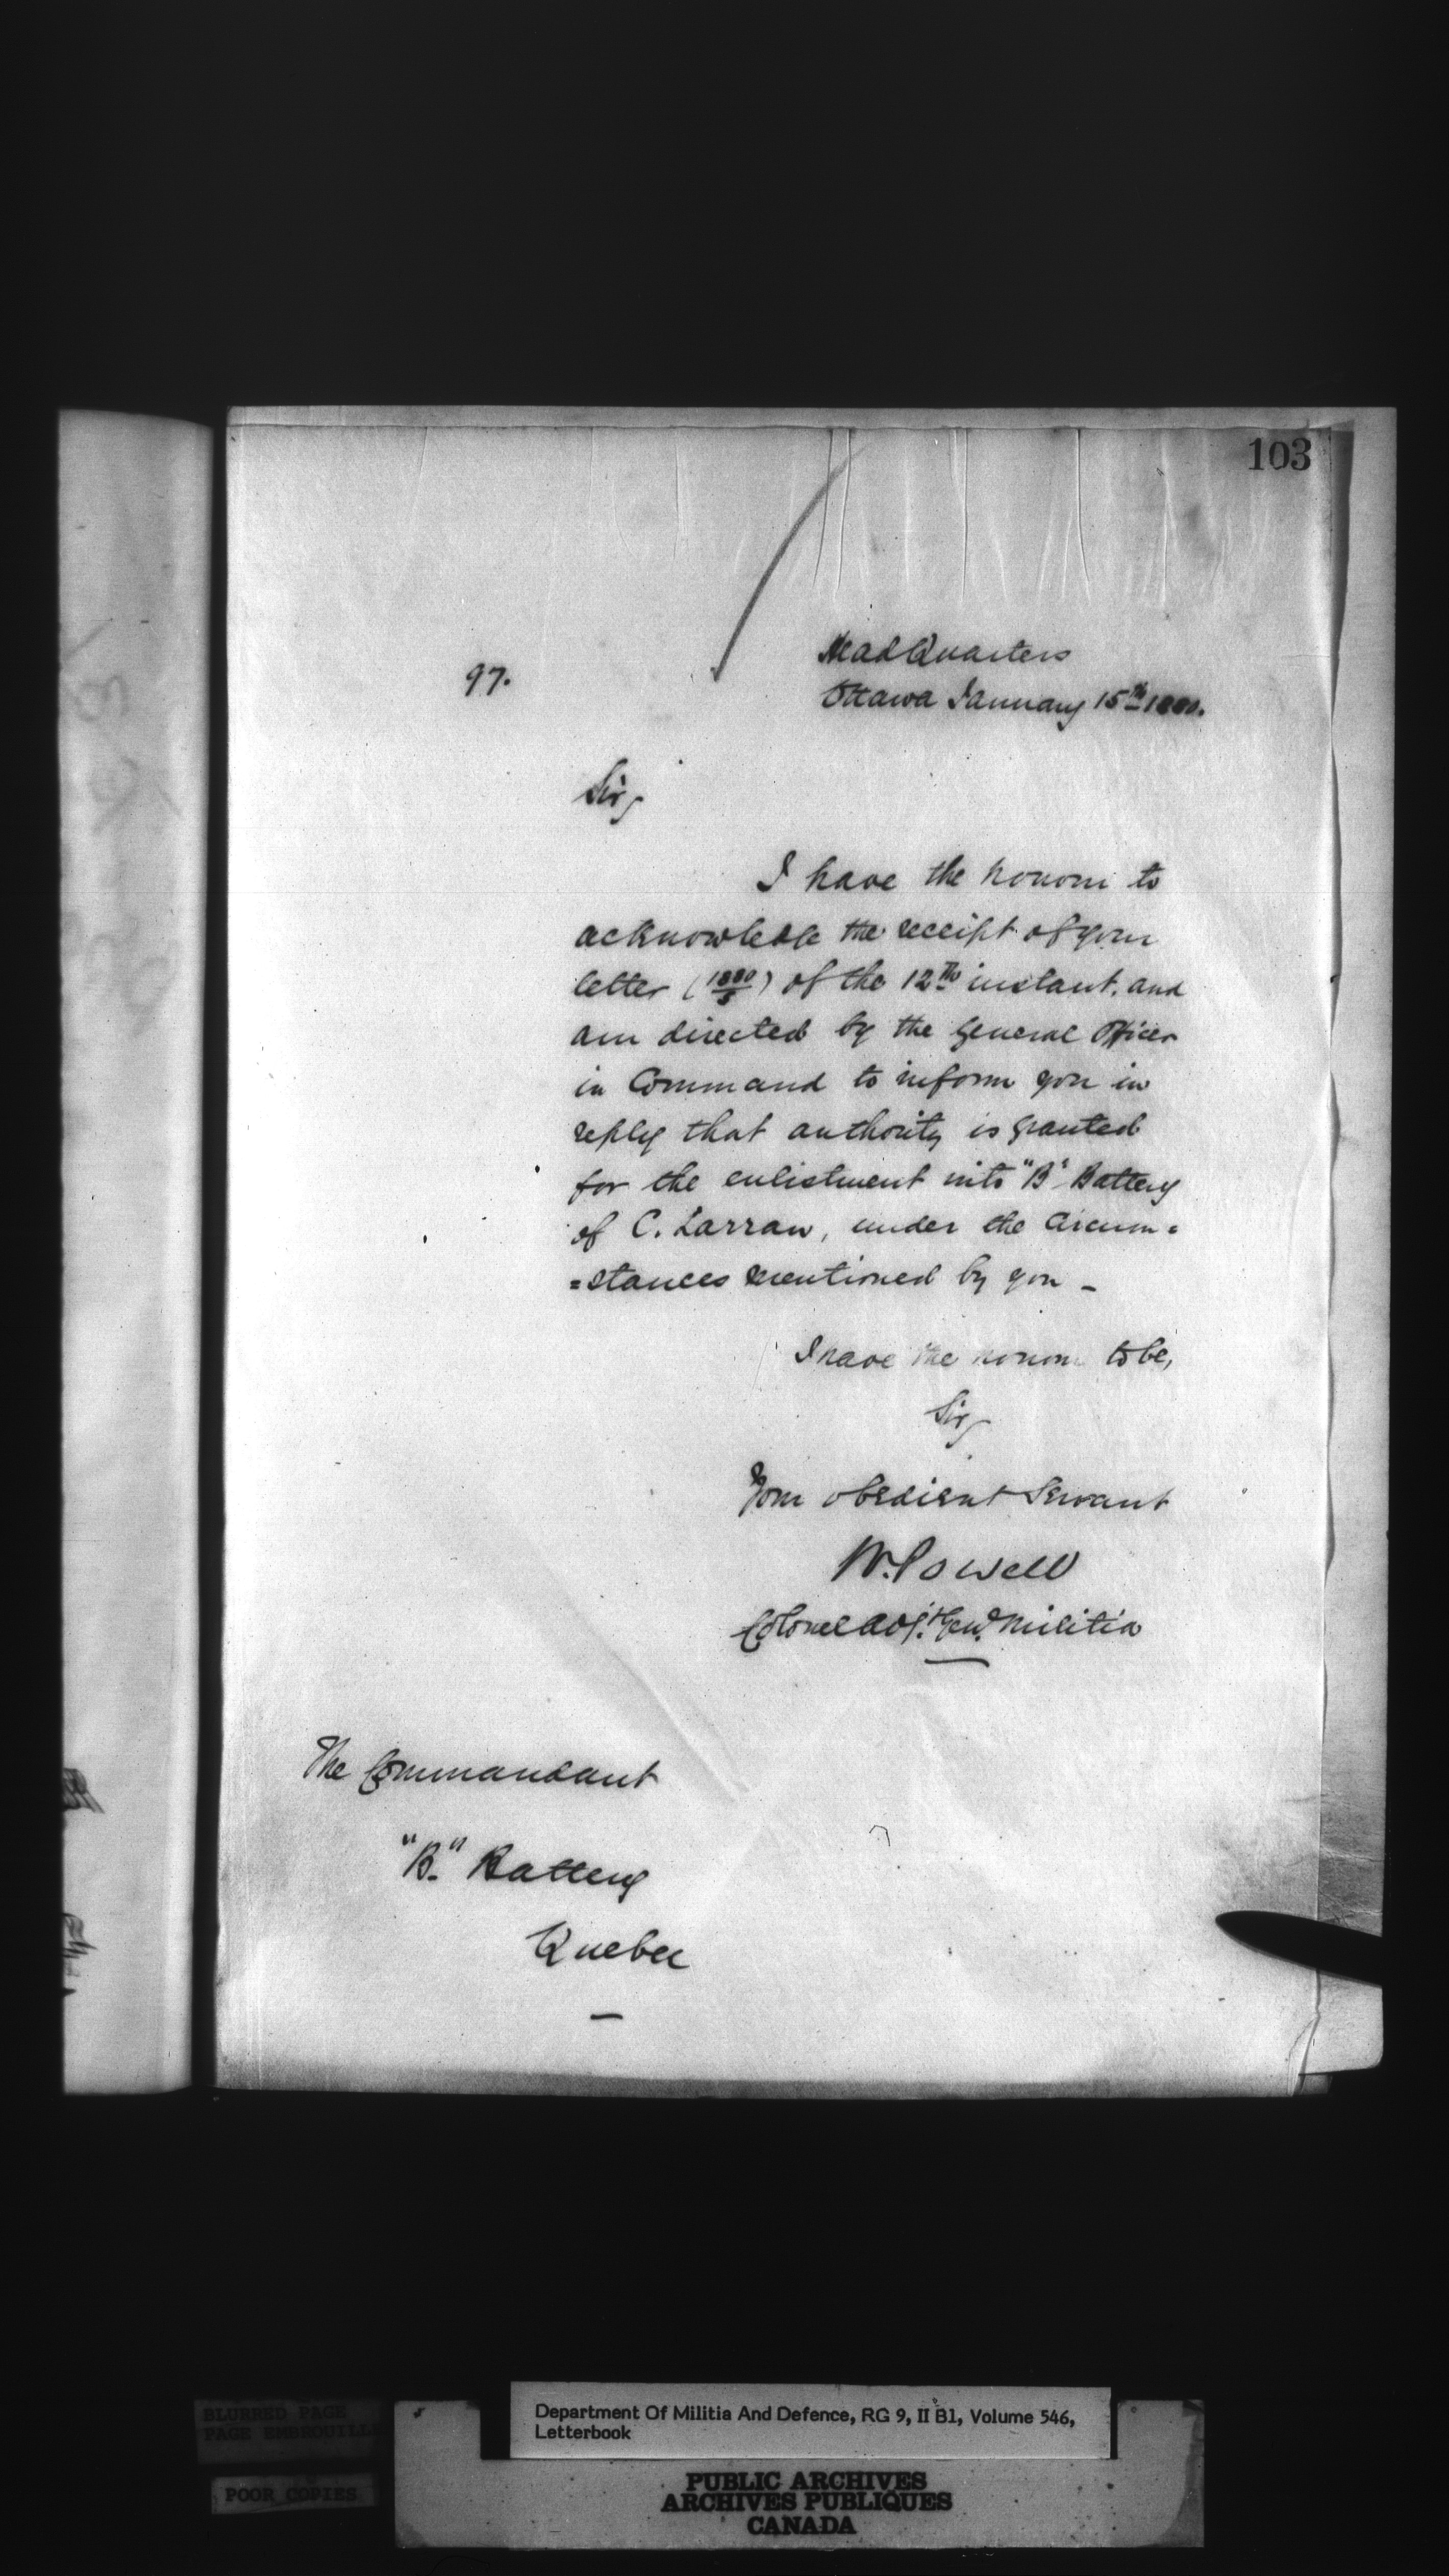 103
97.
HeadQuarters
Ottawa January 15th 1880.
Sir,
I have the honour to
acknowledge the receipt of your
letter (1880/5) of the 12th instant, and
am directed by the General Officer
in Command to inform you in
reply that authority is granted
for the enlistment into "B" Battery
of C. Larraw, under the circum=
=stances mentioned by you _
I have the honour to be,
Sir,
Your obedient Servant
W. Powell
Colonel Adjt. Genl. Militia
The Commandant
"B." Battery
Quebec
Department Of Militia And Defence, RG 9, II B1, Volume 546,
Letterbook
BLURRED PAGE
PAGE EMBROUILL
POOR COPIES
PUBLIC ARCHIVES
ARCHIVES PUBLIQUES
CANADA